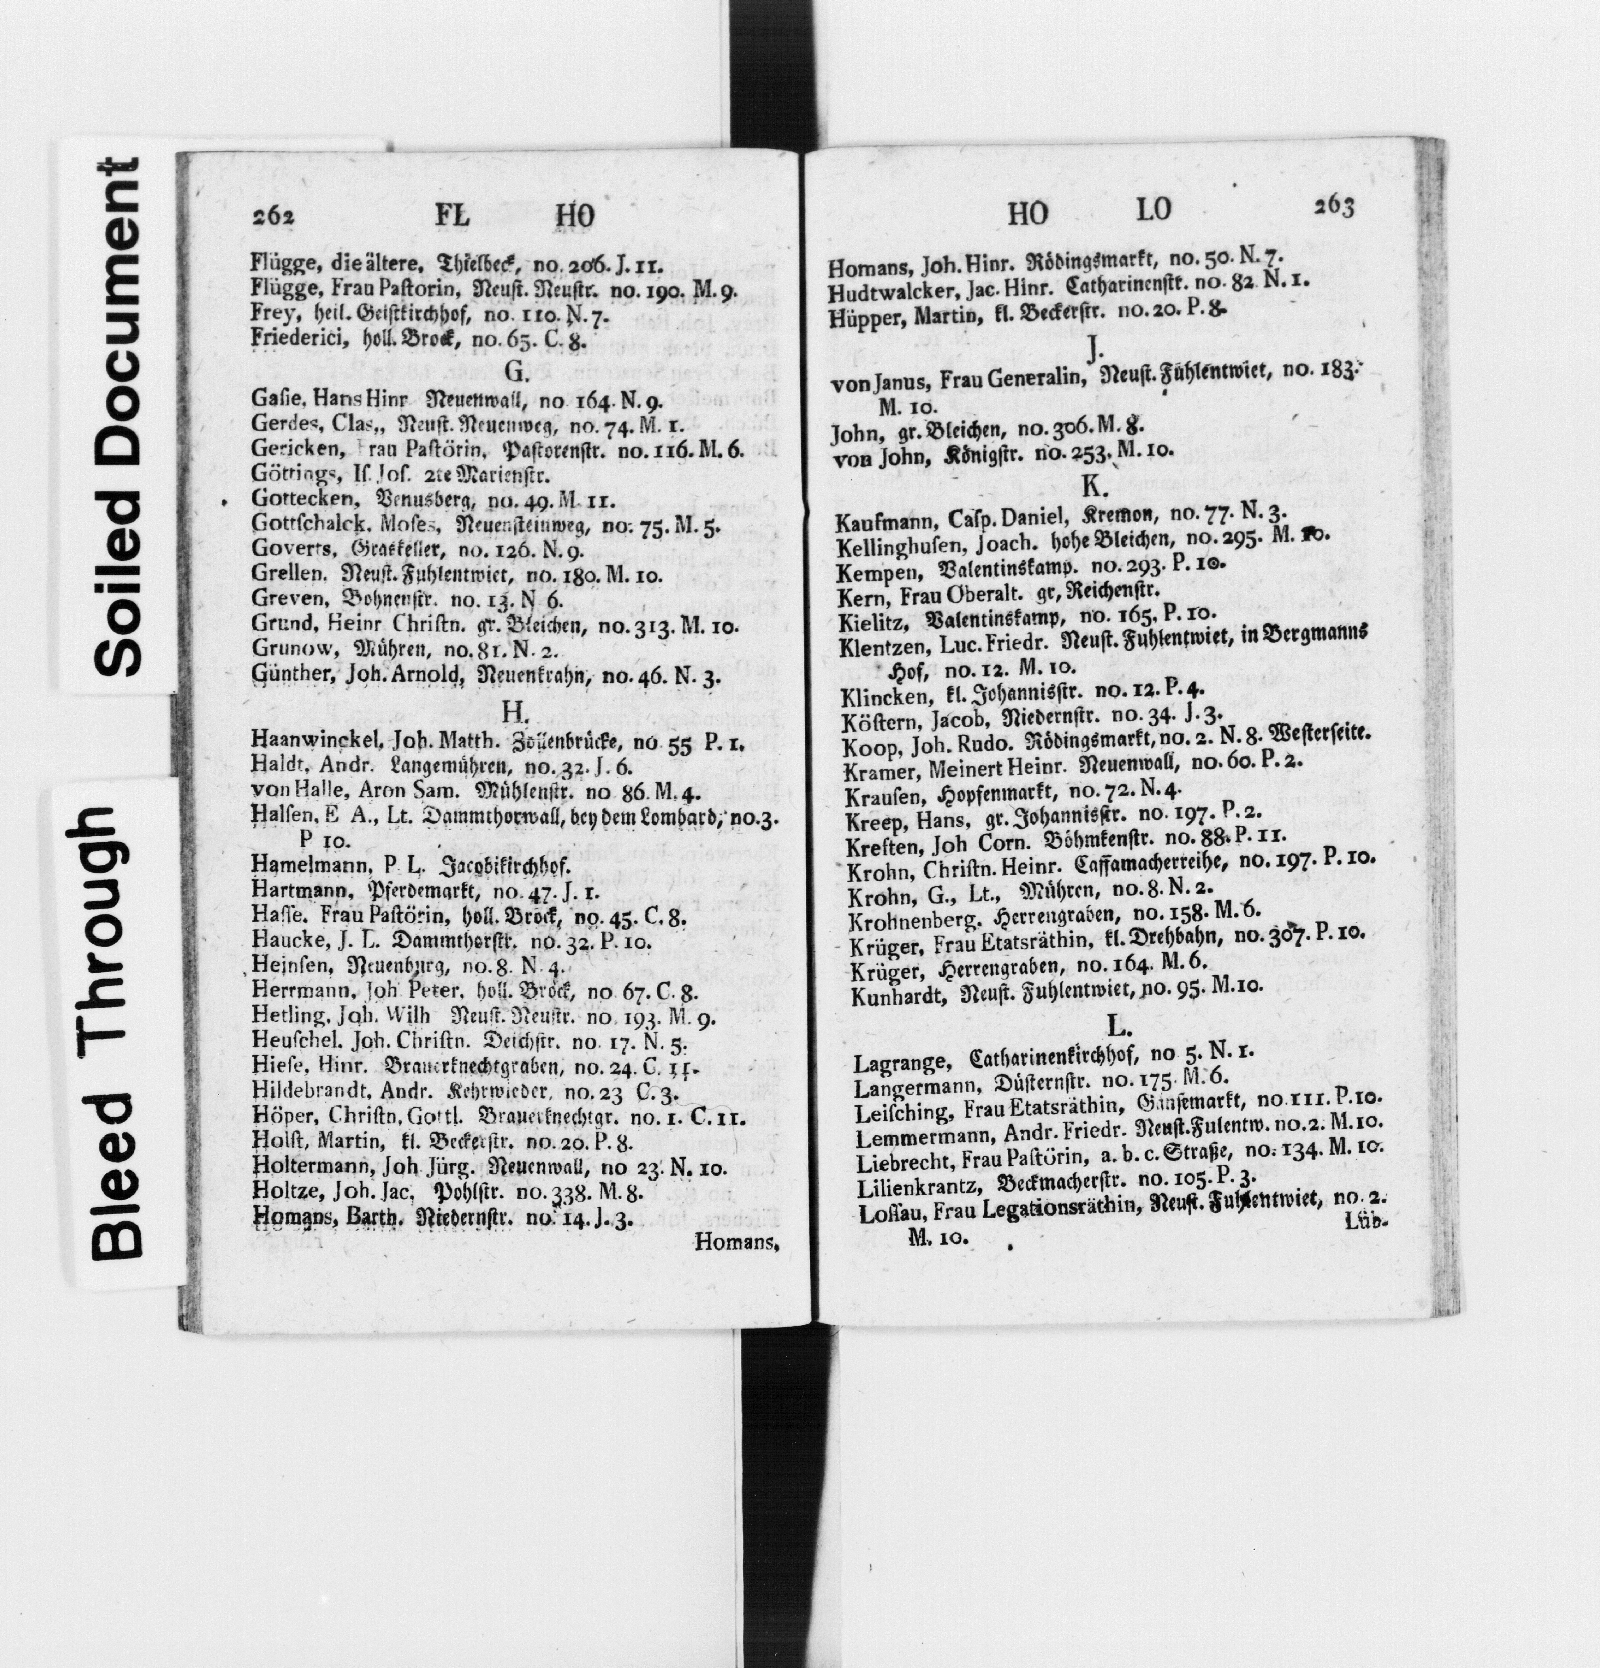 Soiled Document
Bleed Through
262 FL HO
Flügge, die ältere, Thielbeck, no. 206. J. 11.
Flügge, Frau Paſtorin, Neuſt. Neuſtr. no. 190. M. 9.
Frey, heil. Geiſtkirchhof, no. 110. N. 7.
Friederici, holl. Brock, no. 65. C. 8.
G.
Gaſie, Hans Hinr Neuenwall, no 164. N. 9.
Gerdes, Clas,, Neuſt. Neuenweg, no. 74. M. 1.
Gericken, Frau Paſtörin, Paſtorenſtr. no. 116. M. 6.
Göttings, Iſ. Joſ. 2te Marienſtr.
Gottecken, Venusberg, no. 49. M 11.
Gottſchalck, Moſes, Neuenſteinweg, no. 75. M. 5.
Goverts, Graskeller, no. 126. N. 9.
Grellen, Neuſt. Fuhlentwiet, no. 180. M. 10.
Greven, Bohnenſtr. no. 13. N 6.
Grund, Heinr Chriſtn. gr. Bleichen, no. 313. M. 10.
Grunow, Mühren, no. 81. N. 2.
Günther, Joh. Arnold, Neuenkrahn, no. 46. N. 3.
H.
Haanwinckel, Joh. Matth. Zollenbrücke, no 55 P. 1.
Haldt, Andr. Langemühren, no. 32. J. 6.
von Halle, Aron Sam. Mühlenſtr. no 86. M. 4.
Halſen, E A., Lt. Dammthorwall, bey dem Lombard, no. 3.
P 10.
Hamelmann, P. L. Jacobikirchhof.
Hartmann, Pferdemarkt, no. 47. J. 1.
Haſſe, Frau Paſtörin, holl. Brock, no. 45. C. 8.
Haucke, J. L. Dammthorſtr. no. 32. P. 10.
Heinſen, Neuenburg, no. 8. N 4.
Herrmann, Joh Peter, holl. Brock, no 67. C. 8.
Hetling, Joh. Wilh Neuſt. Neuſtr. no 193. M. 9.
Heuſchel, Joh. Chriſtn. Deichſtr. no. 17. N. 5.
Hieſe, Hinr. Brauerknechtgraben, no. 24. C. 11.
Hildebrandt, Andr. Kehrwieder, no. 23 C. 3.
Höper, Chriſtn. Gottl. Brauerknechtgr. no. 1. C. 11.
Holſt, Martin, kl. Beckerſtr. no. 20. P. 8.
Holtermann, Joh Jürg. Neuenwall, no 23. N. 10.
Holtze, Joh. Jac. Pohlſtr. no. 338. M. 8.
Homans, Barth. Niedernſtr. no. 14. J. 3.
Homans,
HO LO 263
Homans, Joh. Hinr. Rödingsmarkt, no. 50. N. 7.
Hudtwalcker, Jac. Hinr. Catharinenſtr. no. 82 N. 1.
Hüpper, Martin, kl. Beckerſtr. no. 20. P. 8.
J.
von Janus, Frau Generalin, Neuſt. Fühlentwiet, no. 183.
M. 10.
John, gr. Bleichen, no. 306. M. 8.
von John, Königſtr. no. 253. M. 10.
K.
Kaufmann, Caſp. Daniel, Kremon, no. 77. N. 3.
Kellinghuſen, Joach. hohe Bleichen, no. 295. M. 10.
Kempen, Valentinskamp. no. 293. P. 10.
Kern, Frau Oberalt. gr, Reichenſtr.
Kielitz, Valentinskamp, no. 165. P. 10.
Klentzen, Luc. Friedr. Neuſt. Fuhlentwiet, in Bergmanns
Hof, no. 12. M. 10.
Klincken, kl. Johannisſtr. no. 12. P. 4.
Köſtern, Jacob, Niedernſtr. no. 34. J. 3.
Koop, Joh. Rudo. Rödingsmarkt, no. 2. N. 8. Weſterſeite.
Kramer, Meinert Heinr. Neuenwall, no. 60. P. 2.
Krauſen, Hopfenmarkt, no. 72. N. 4.
Kreep, Hans, gr. Johannisſtr. no. 197. P. 2.
Kreſten, Joh Corn. Böhmkenſtr. no. 88. P. 11.
Krohn, Chriſtn. Heinr. Caffamacherreihe, no. 197. P. 10.
Krohn, G., Lt., Mühren, no. 8. N. 2.
Krohnenberg. Herrengraben, no. 158. M. 6.
Krüger, Frau Etatsräthin, kl. Drehbahn, no. 307. P. 10.
Krüger, Herrengraben, no. 164. M. 6.
Kunhardt, Neuſt. Fuhlentwiet, no. 95. M. 10.
L.
Lagrange, Catharinenkirchhof, no 5. N. 1.
Langermann, Düſternſtr. no. 175 M. 6.
Leiſching, Frau Etatsräthin, Gänſemarkt, no. 111. P. 10.
Lemmermann, Andr. Friedr. Neuſt. Fulentw. no. 2. M. 10.
Liebrecht, Frau Paſtörin, a. b. c. Straße, no. 134. M. 10.
Lilienkrantz, Beckmacherſtr. no. 105. P. 3.
Loſſau, Frau Legationsräthin, Neuſt. Fuhlentwiet, no. 2.
M. 10.
Lüb-